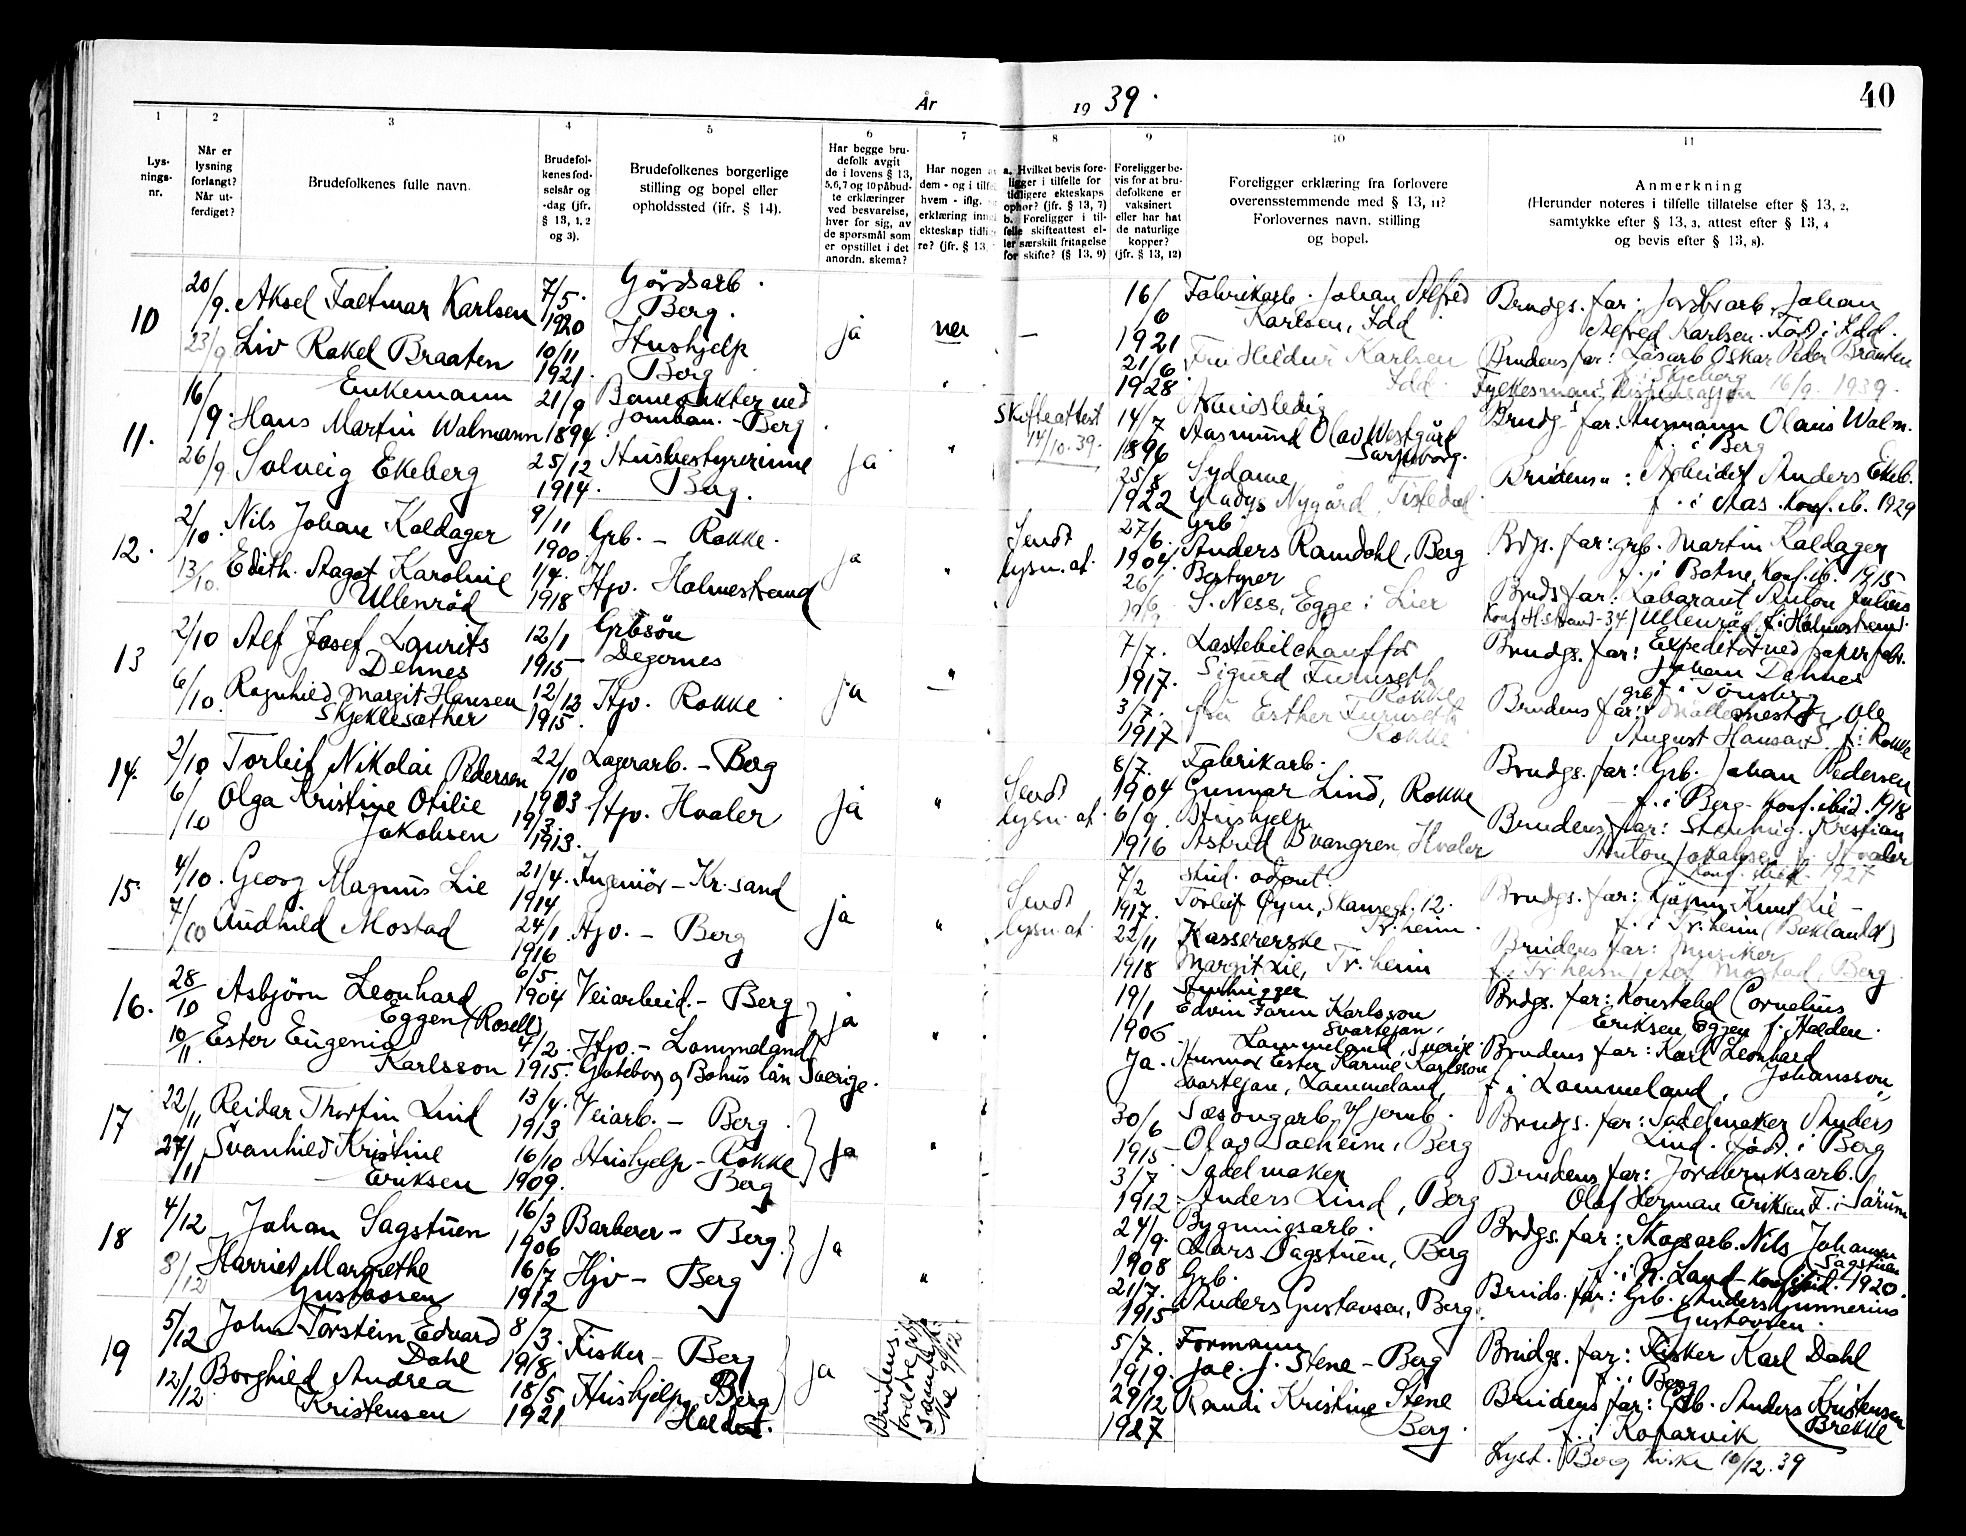 40
År 1939.
1 2 3 4 5 6 7 8 9 10 11
Lys-
nings-
nr.
Når er
lysning
forlangt?
Når ut-
ferdiget?
Brudefolkenes fulle navn.
Brudefol-
kenes fød-
selsår og
-dag (jfr.
§ 13, 1, 2
og 3).
Brudefolkenes borgerlige
stilling og bopel eller
opholdssted (ifr. § 14).
Har begge bru-
defolk avgit
de i lovens § 13,
5, 6, 7 og 10 påbud-
te erklæringer
ved besvarelse,
hver for sig, av
de spørsmål som
er opstillet i det
anordn. skema?
Har nogen a
dem - og i tilf
hvem - iflg.
erklæring inn
ekteskap tidli
re? (jfr. § 13,
a. Hvilket bevis fore-
ligger i tilfelle for
tidligere ekteskaps
ophør? (§ 13, 7)
b. Foreligger i til-
felle skifteattest el-
ler særskilt fritagelse
for skifte? (§ 13, 9)
Foreligger be-
vis for at bru-
defolkene er
vaksinert
eller har hat
de naturlige
kopper?
(jfr. § 13, 12)
Foreligger erklæring fra forlovere
overensstemmende med § 13, 11?
Forlovernes navn, stilling
og bopel.
Anmerkning
(Herunder noteres i tilfelle tillatelse efter § 13, 2,
samtykke efter § 13, 3, attest efter § 13, 4
og bevis efter § 13, 8).
10
20/9. Aksel Faltmar Karlsen 7/5. 1920 Gårdsarb. Berg.
23/9 Liv Rakel Braaten 10/11 1921. Hushjelp Berg
ja nei —
16/6 1921 Fabrikarb. Johan Alfred
Karlsen, Idd
21/6 1928. Fru Hildur Karlsen
Idd.
Brudgs. far: Johan
Alfred Karlsen. Født i Idd.
Brudens far: Oskar Peder Braaten
f. i Skjeberg
16/9. 1939.
11.
16/9. Enkemann
Hans Martin Walmann 21/9 1894. Banevokter ved
jernban. - Berg
26/9 Solveig Ekeberg 25/12 1914. Husbestyrerinne
Berg.
ja "
Skifteattest
14/10. 39.
14/7 1896 Arbeidsledig
Aasmund Olav Westgård
Sarpsborg.
25/8 1922 Sydame
Gladys Nygård Tistedal
Brudgs far: Olaus Walm.
f. i Berg
Brudens ": Arbeider Anders Ekeb.
f. i Aas. Konf. ib. 1929
12.
2/10. Nils Johan Kaldager 9/11 1900. Grb. - Rokke.
13/10. Edith Aagot Karoline
Ullenrød 1/4. 1918 Hjv. Holmestrand
ja "
Sendt
lysn. at.
27/6. 1904. Grb.
Anders Ramdahl, Berg
26/6 Bestyrer
S. Ness, Egge i Lier
Bdgs. far: grb. Martin Kaldager
f. i Botne, Konf. ib. 1915
Bruds far: Anton Julius
Konf H.strand -34) Ullenrød f. i Holmestrand.
13
2/10 Alf Josef Laurits
Dehnes 12/1 1915 Grbsøn
Degernes
6/10. Ragnhild Margit Hansen
Skjeklesæther 12/12 1915. Hjv. Rokke
ja "
7/7. 1917. Lastebilchauffør
Sigurd Furuseth
Rokke
3/7. 1917 Fru Esther Furuseth
Rokke
Brudgs. far: Expeditør ved papirfabr.
Johan Dehnes
f. i Tønsberg
Brudens far: Ole
August Hansen f. i Rokke
14.
2/10 Torleif Nikolai Pedersen 22/10 1903 Lagerarb. - Berg
6/10 Olga Kristine Otilie
Jakobsen 19/3 1913. Hjv. Hvaler
ja "
Sendt
lysn. at.
8/7. 1904 Fabrikarb.
Gunnar Lind, Rokke
6/9. 1916 Hushjelp
Astrid Svangren Hvaler
Brudgs. far: Grb. Johan Pedersen
f. i Berg - Konf. ibid. 1918
Brudens far: Stenhug. Kristian
Anton Jakobsen f. i Hvaler
Konf. ibid. 1927
15.
4/10. Georg Magnus Lie 21/4. 1914 Ingeniør - Kr. sand
7/10 Audhild Mostad 24/1 1916 Hjv. - Berg
ja "
Sendt
lysn. at.
7/2 1917. stud. odont.
Torleif Øyen, Skansegt. 12.
Tr.heim.
22/11 1918 Kassererske
Margit Lie, Tr.heim
Brudgs. far: Knut Lie -
f. i Tr.heim (Baklandet)
Brudens far: Musiker
f. i Tr.heim/ Alf Mostad, Berg
16.
28/10 Asbjørn Leonhard
Eggen (Rosell) 6/5 1904 Veiarbeid. - Berg
10/11. Ester Eugenia
Karlsson 4/2. 1915. Hjv. - Lommeland
Gøteborg og Bohus län Sverige.
ja "
19/1 1906 Stenhugger
Edvin Farin Karlsson
Svartejan,
Lommeland, Sverige.
Ja. Husmor Ester Karine Karlsson
Svartejan, Lommeland,
Brdgs. far: Konstabel Cornelius
Eriksen Eggen f. i Halden.
Brudens far: Karl Leonhard
Johansson,
f. i Lommeland,
17
22/11 Reidar Thorfin Lind 13/4. 1913 Veiarb. - Berg.
27/11 Svanhild Kristine
Eriksen 16/10 1909. Hushjelp - Rokke
Berg
ja "
30/6 1915 Sesongarb. v/ jernb.
Olav Solheim, Berg
3/7. 1912 Sadelmaker
Anders Lind, Berg
Brudgs. far: Sadelmaker Anders
Lind. født i Berg
Brudens far: Jordbruksarb.
Olaf Herman Eriksen F. i Sørum
18
4/12 Johan Sagstuen 16/3 1906 Barberer - Berg.
8/12 Harriet Margrethe
Gustavsen 16/7 1912 Hjv - Berg
ja "
24/9. 1908 Bygningsarb.
Lars Sagstuen, Berg
21/7. 1915 Grb.
Anders Gustavsen, Berg.
Brdgs. far: Skogsarb. Nils Johansen
Sagstuen
f. i N. Land - Konf. ibid. 1920.
Bruds. far: Grb. Anders Gunnerius
Gustavsen.
19
5/12 John Torstein Edvard
Dahl 8/3. 1918 Fisker - Berg
12/12 Borghild Andrea
Kristensen 18/5 1921 Hushjelp Berg
Halden.
ja
Brudens
foreldre
samtykke 9/12
5/7. 1919. Formann
Jac. J. Stene - Berg
29/12 1927 Randi Kristine Stene
Berg.
Brudgs. far: Fisker Karl Dahl
f. i Berg
Brudens far: Grb. Anders Kristensen
Brekke
f. i Kopervik
Lyst. i Berg kirke 10/12. 39